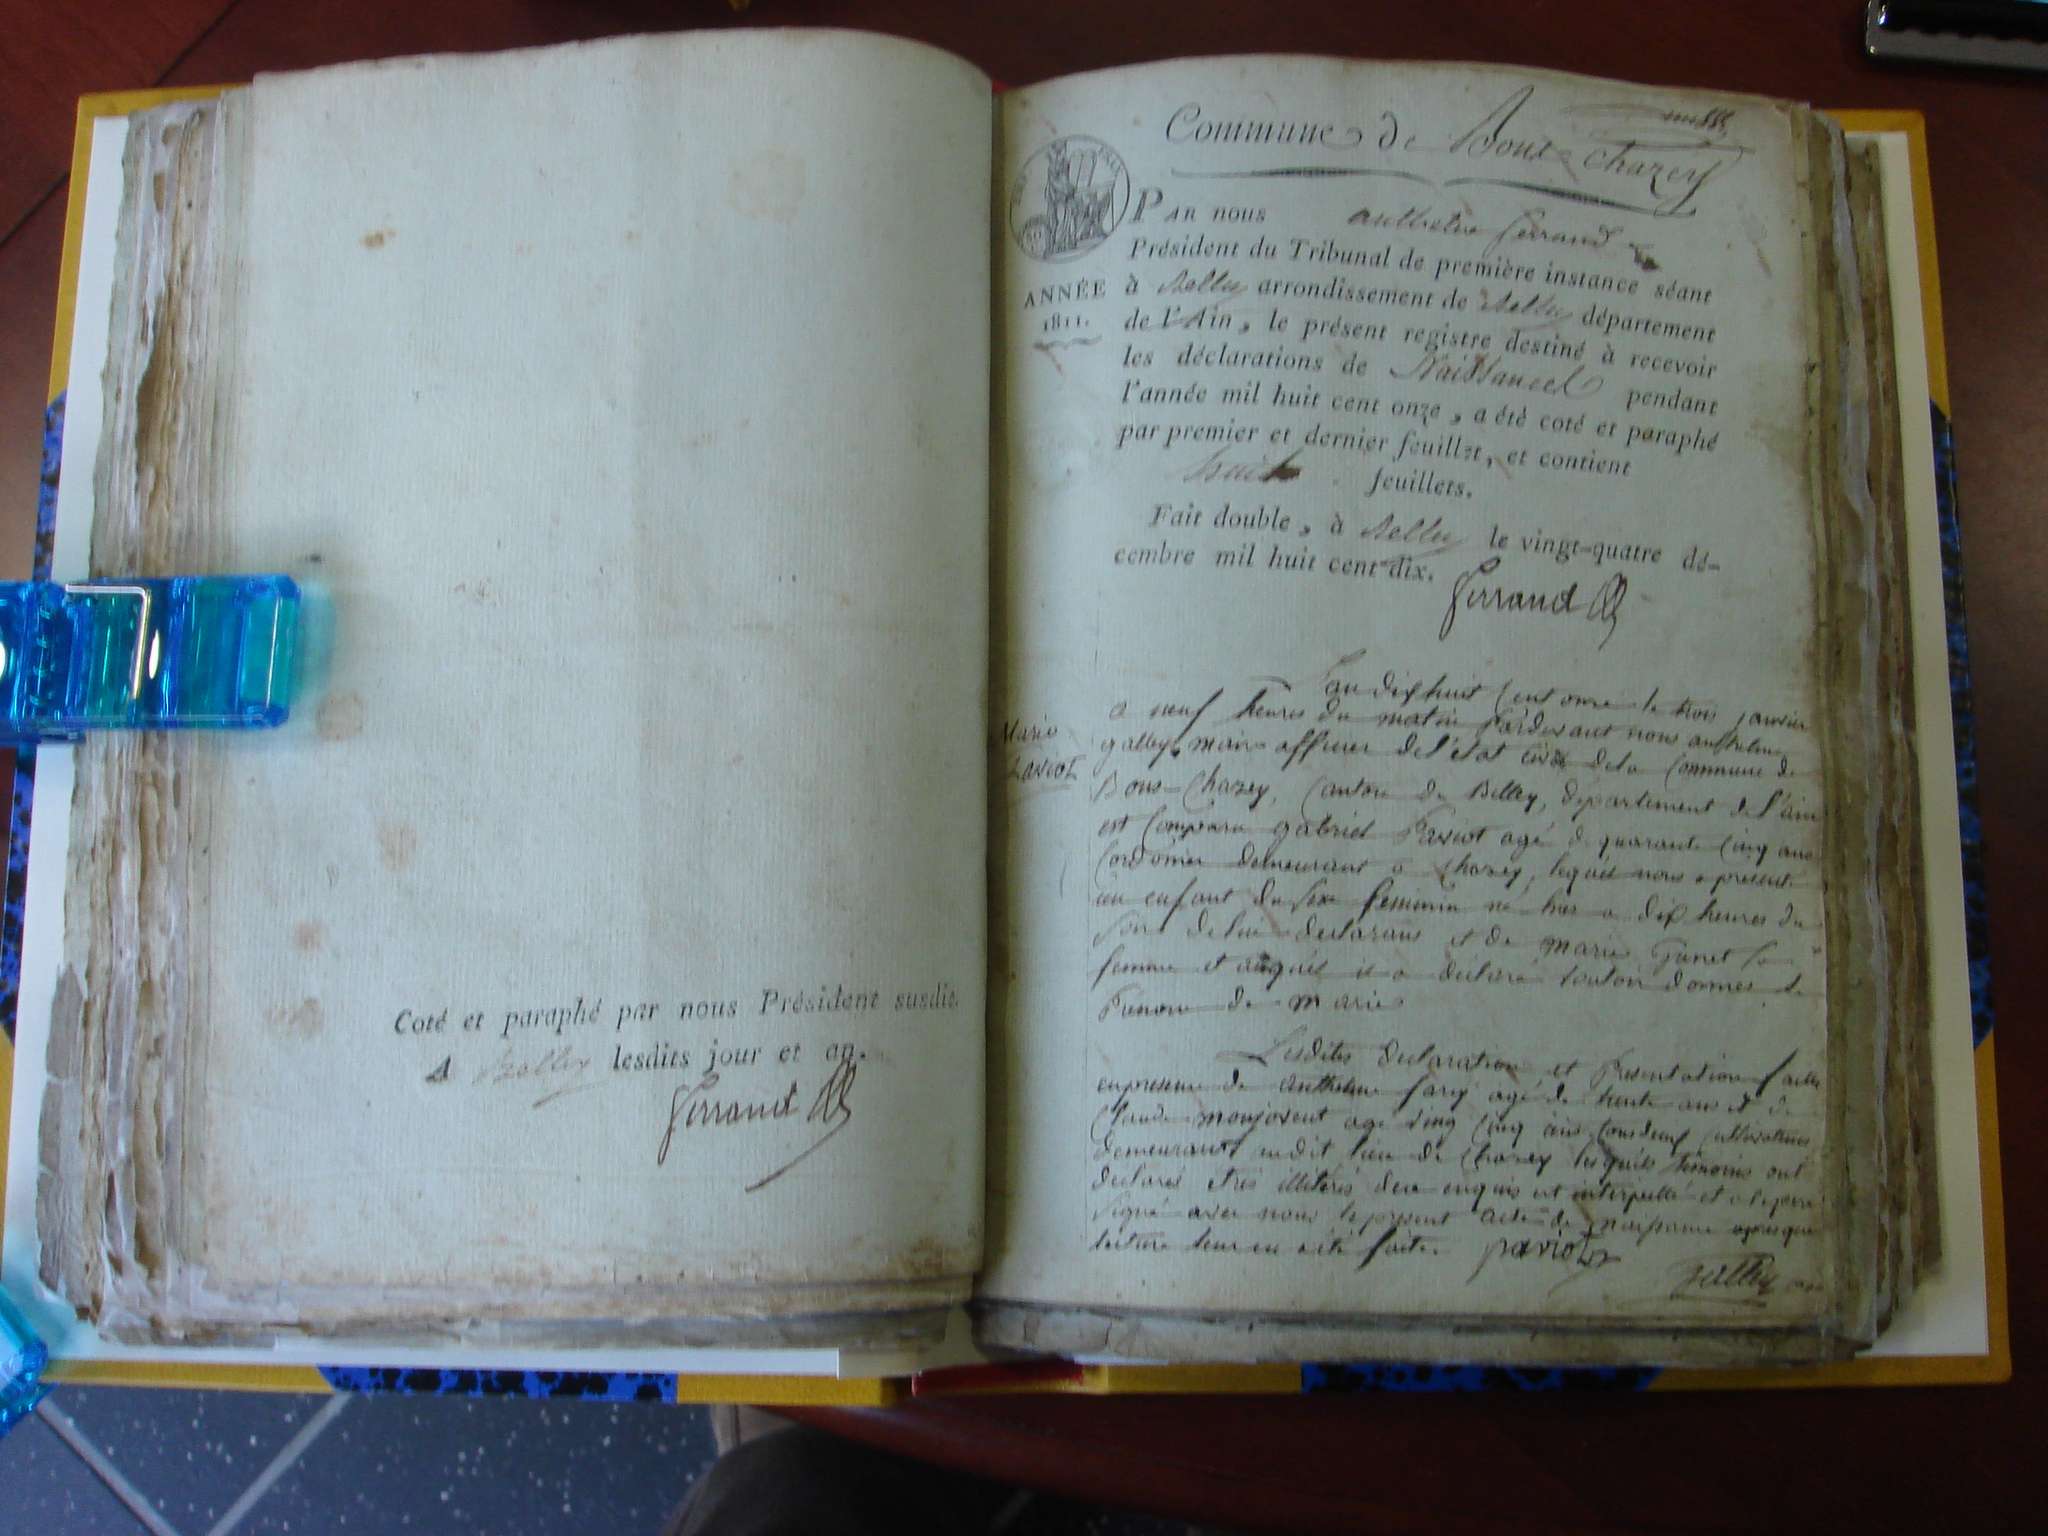 Coté et paraphé par nous Président susdit
A Belley lesdits jour et an.
Ferrand
Commune de Bons Chazey
PAR nous anthelme ferrand
Président du Tribunal de première instance séant
ANNÉE
1811.
à Belley arrondissement de Belley département
de l'Ain, le présent registre destiné à recevoir
les déclarations de Naissances pendant
l'année mil huit cent onze, a été coté et paraphé
par premier et dernier feuillet, et contient
huit feuillets.
Fait double, à Belley le vingt-quatre dé-
cembre mil huit cent dix.
Ferrand
Marie
Paviot
L'an dix huit Cent onze le trois janvier
a neuf heures du matin Pardevant nous anthelme
galley maire officier de l'état civil de la Commune de
Bons-Chazey, Canton de Belley, departement de l'ain
est Comparu gabriel Paviot agé de quarante Cinq ans
Cordonier demeurant a Chazey, lequel nous a presenté
un enfant du Sexe feminin né hier a dix heures du
Soir de lui declarant et de marie Sa
femme et auquel il a déclaré vouloir donner le
Prenom de marie
Lesdites declaration et Presentation faites
en presence de anthelme agé de trente ans et de
Claude monjovent agé vingt Cinq ans tous deux cultivateurs
demeurants audit lieu de Chazey lesquels témoins ont
declaré etres illiterés de ce enquis et interpellé et le pere
Signé avec nous le present acte de naissance apres que
lecture leur en a été faite. paviot
Galley